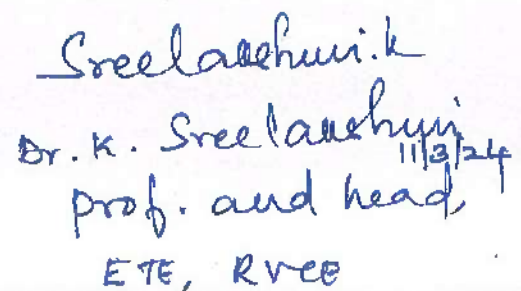 Sreelakshmi.k
Dr. K. Sreelakshmi
11/3/24
prof. and head,
ETE, RVCE